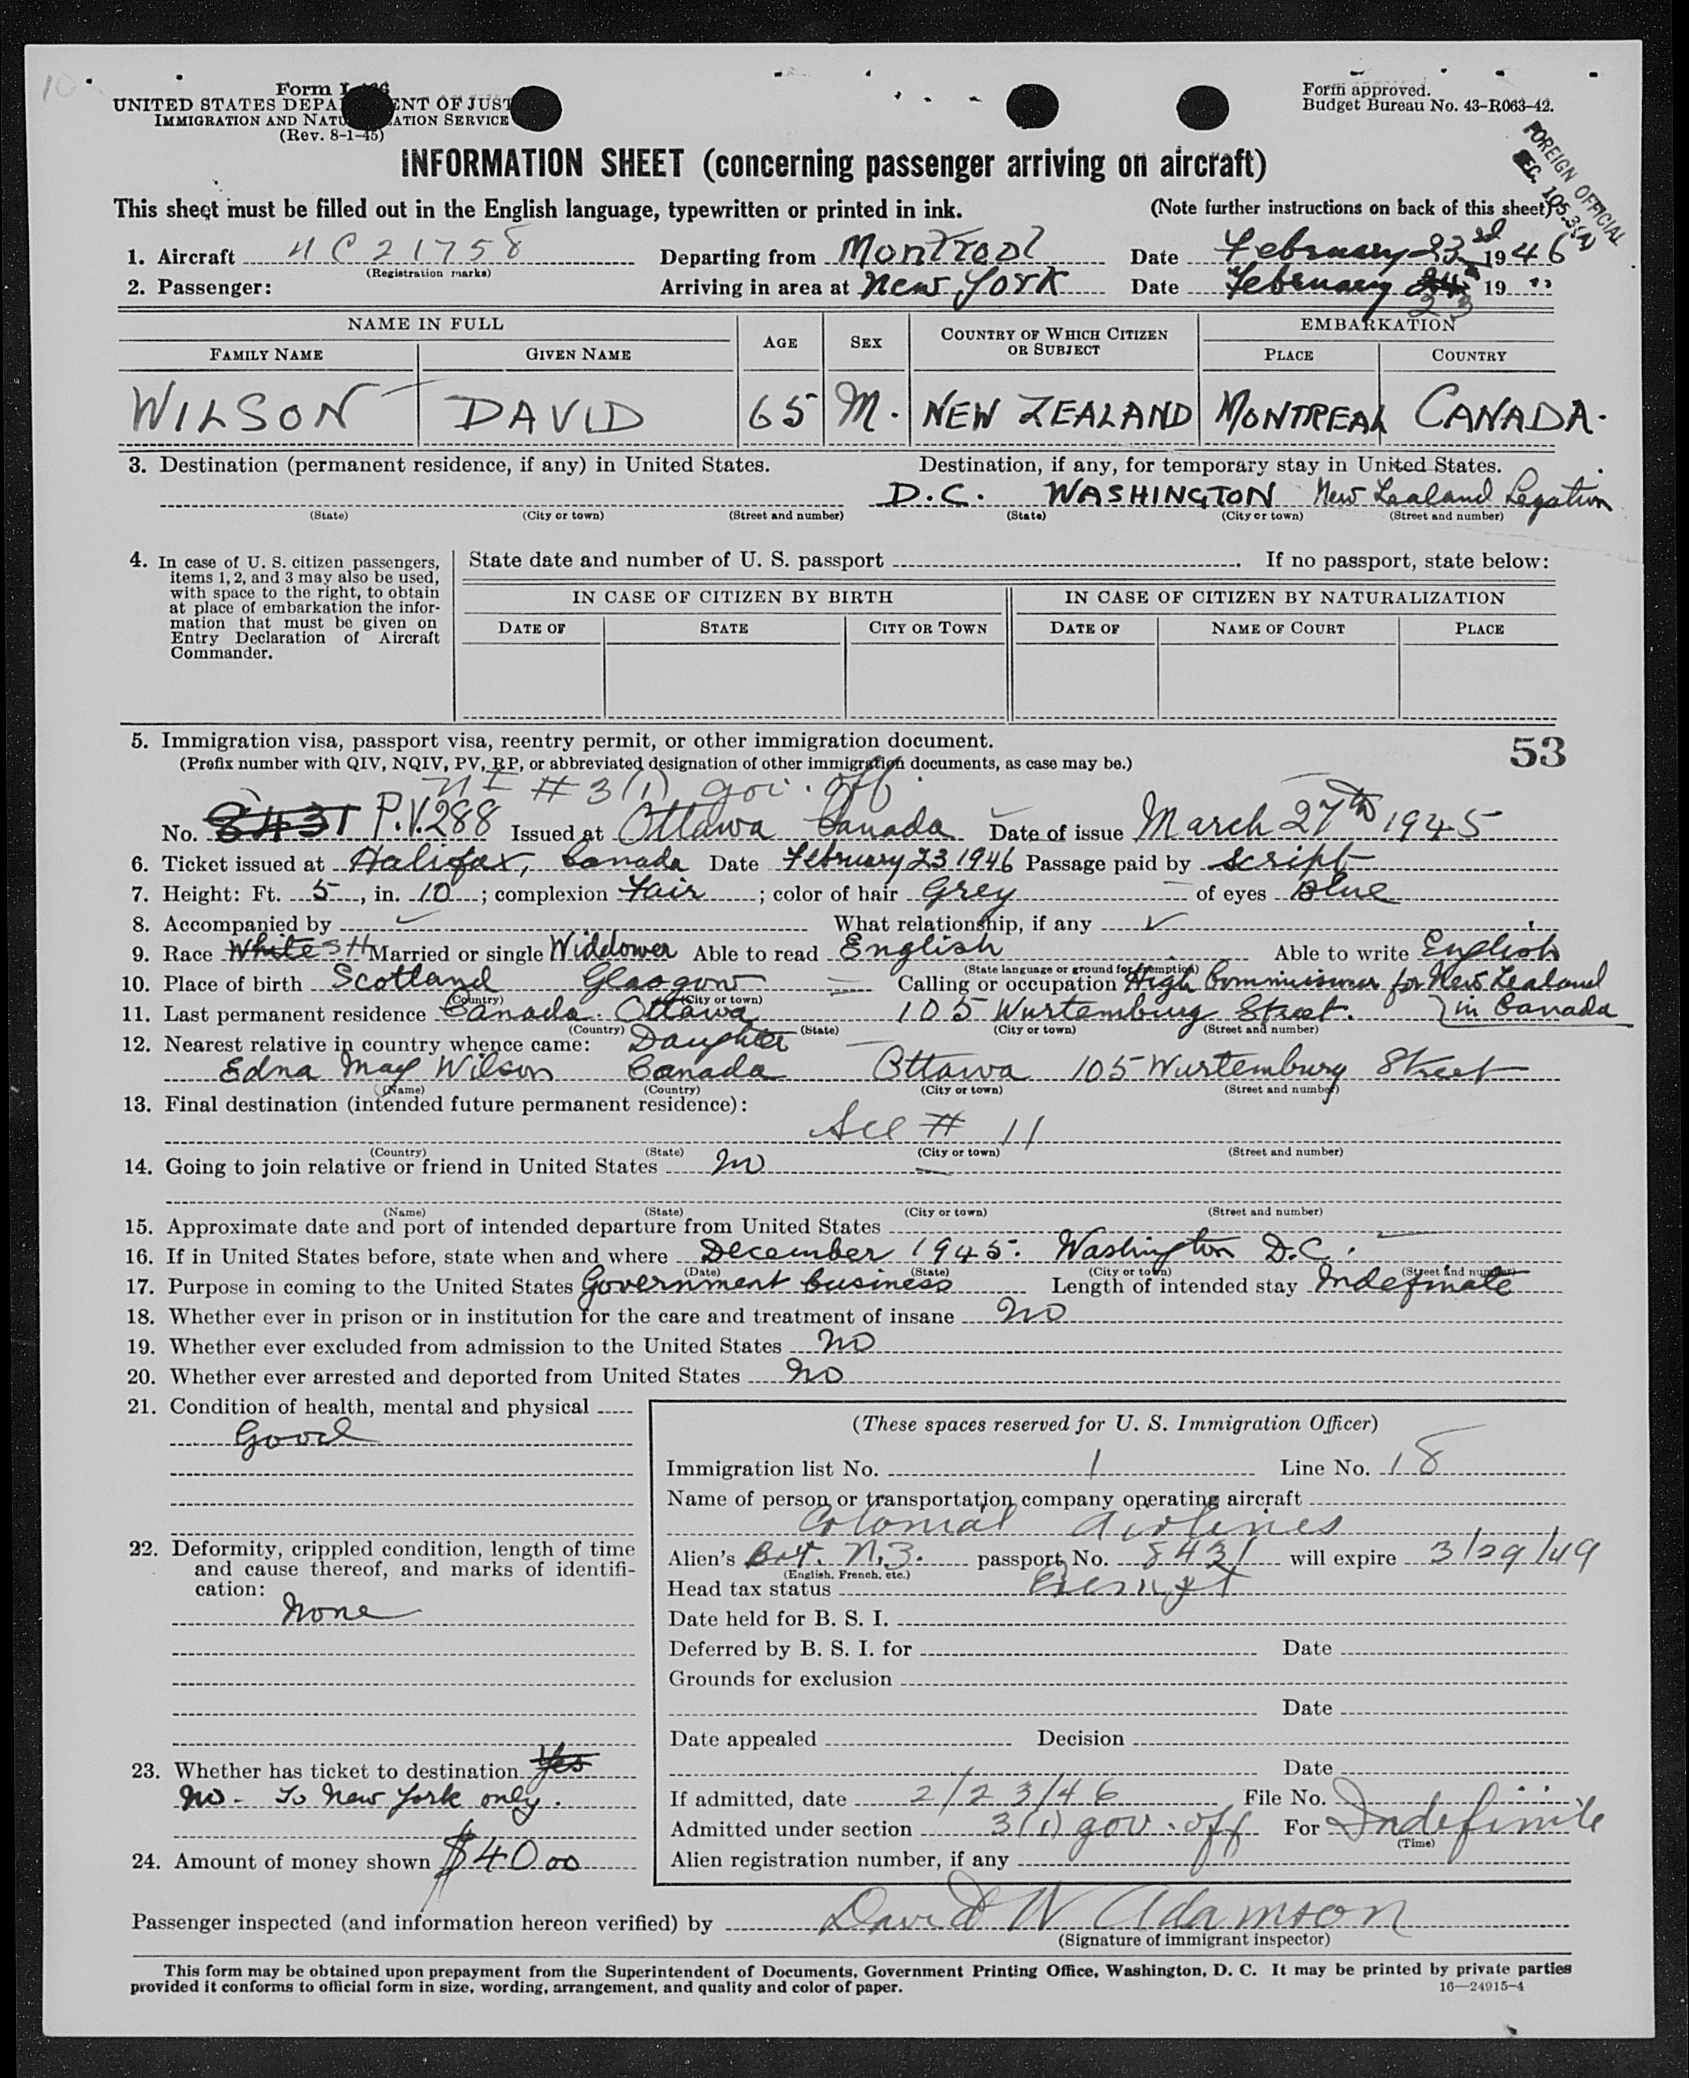 10
Form I-466
UNITED STATES DEPARTMENT OF JUSTICE
IMMIGRATION AND NATURALIZATION SERVICE
(Rev. 8-1-45)
Form approved.
Budget Bureau No. 43-R063-42.
FOREIGN OFFICIAL
SEC. 105.3(A)
INFORMATION SHEET (concerning passenger arriving on aircraft)
This sheet must be filled out in the English language, typewritten or printed in ink. (Note further instructions on back of this sheet)
1. Aircraft NC 21758 Departing from Montreal Date February 23rd 1946
(Registration marks)
2. Passenger: Arriving in area at New York Date February 24 23 19 "
NAME IN FULL AGE SEX COUNTRY OF WHICH CITIZEN OR SUBJECT EMBARKATION
FAMILY NAME GIVEN NAME PLACE COUNTRY
WILSON DAVID 65 M. NEW ZEALAND MONTREAL CANADA.
3. Destination (permanent residence, if any) in United States. Destination, if any, for temporary stay in United States.
D.C. WASHINGTON New Zealand Legation
(State) (City or town) (Street and number) (State) (City or town) (Street and number)
4. In case of U. S. citizen passengers, items 1, 2, and 3 may also be used, with space to the right, to obtain at place of embarkation the information that must be given on Entry Declaration of Aircraft Commander.
State date and number of U. S. passport . If no passport, state below:
IN CASE OF CITIZEN BY BIRTH IN CASE OF CITIZEN BY NATURALIZATION
DATE OF STATE CITY OR TOWN DATE OF NAME OF COURT PLACE
5. Immigration visa, passport visa, reentry permit, or other immigration document. 53
(Prefix number with QIV, NQIV, PV, RP, or abbreviated designation of other immigration documents, as case may be.)
NI #3(1) gov. off
No. 8431 P.V.288 Issued at Ottawa Canada Date of issue March 27th 1945
6. Ticket issued at Halifax, Canada Date February 23 1946 Passage paid by script
7. Height: Ft. 5, in. 10; complexion Fair; color of hair Grey of eyes Blue
8. Accompanied by ✓ What relationship, if any ✓
9. Race White SH Married or single Widdower Able to read English Able to write English
(State language or ground for exemption)
10. Place of birth Scotland Glasgow Calling or occupation High Commissioner for New Zealand
(Country) (City or town)
11. Last permanent residence Canada. Ottawa 105 Wurtemburg Street. } in Canada
(Country) (State) (City or town) (Street and number)
12. Nearest relative in country whence came: Daughter
Edna May Wilson Canada Ottawa 105 Wurtemburg Street
(Name) (Country) (City or town) (Street and number)
13. Final destination (intended future permanent residence):
See # 11
(Country) (State) (City or town) (Street and number)
14. Going to join relative or friend in United States No
(Name) (State) (City or town) (Street and number)
15. Approximate date and port of intended departure from United States
16. If in United States before, state when and where December 1945. Washington D.C.
(Date) (State) (City or town) (Street and number)
17. Purpose in coming to the United States Government business Length of intended stay Indefinate
18. Whether ever in prison or in institution for the care and treatment of insane No
19. Whether ever excluded from admission to the United States No
20. Whether ever arrested and deported from United States No
21. Condition of health, mental and physical
Good
22. Deformity, crippled condition, length of time and cause thereof, and marks of identification:
None
23. Whether has ticket to destination Yes
No - To New York only.
24. Amount of money shown $40.00
(These spaces reserved for U. S. Immigration Officer)
Immigration list No. 1 Line No. 18
Name of person or transportation company operating aircraft
Colonial Airlines
Alien's Brit. N.Z. passport No. 8431 will expire 3/29/49
(English, French, etc.)
Head tax status Exempt
Date held for B. S. I.
Deferred by B. S. I. for Date
Grounds for exclusion
Date
Date appealed Decision
Date
If admitted, date 2/23/46 File No.
Admitted under section 3(1) gov. off For Indefinite
(Time)
Alien registration number, if any
Passenger inspected (and information hereon verified) by David W Adamson
(Signature of immigrant inspector)
This form may be obtained upon prepayment from the Superintendent of Documents, Government Printing Office, Washington, D. C. It may be printed by private parties
provided it conforms to official form in size, wording, arrangement, and quality and color of paper. 16—24915-4